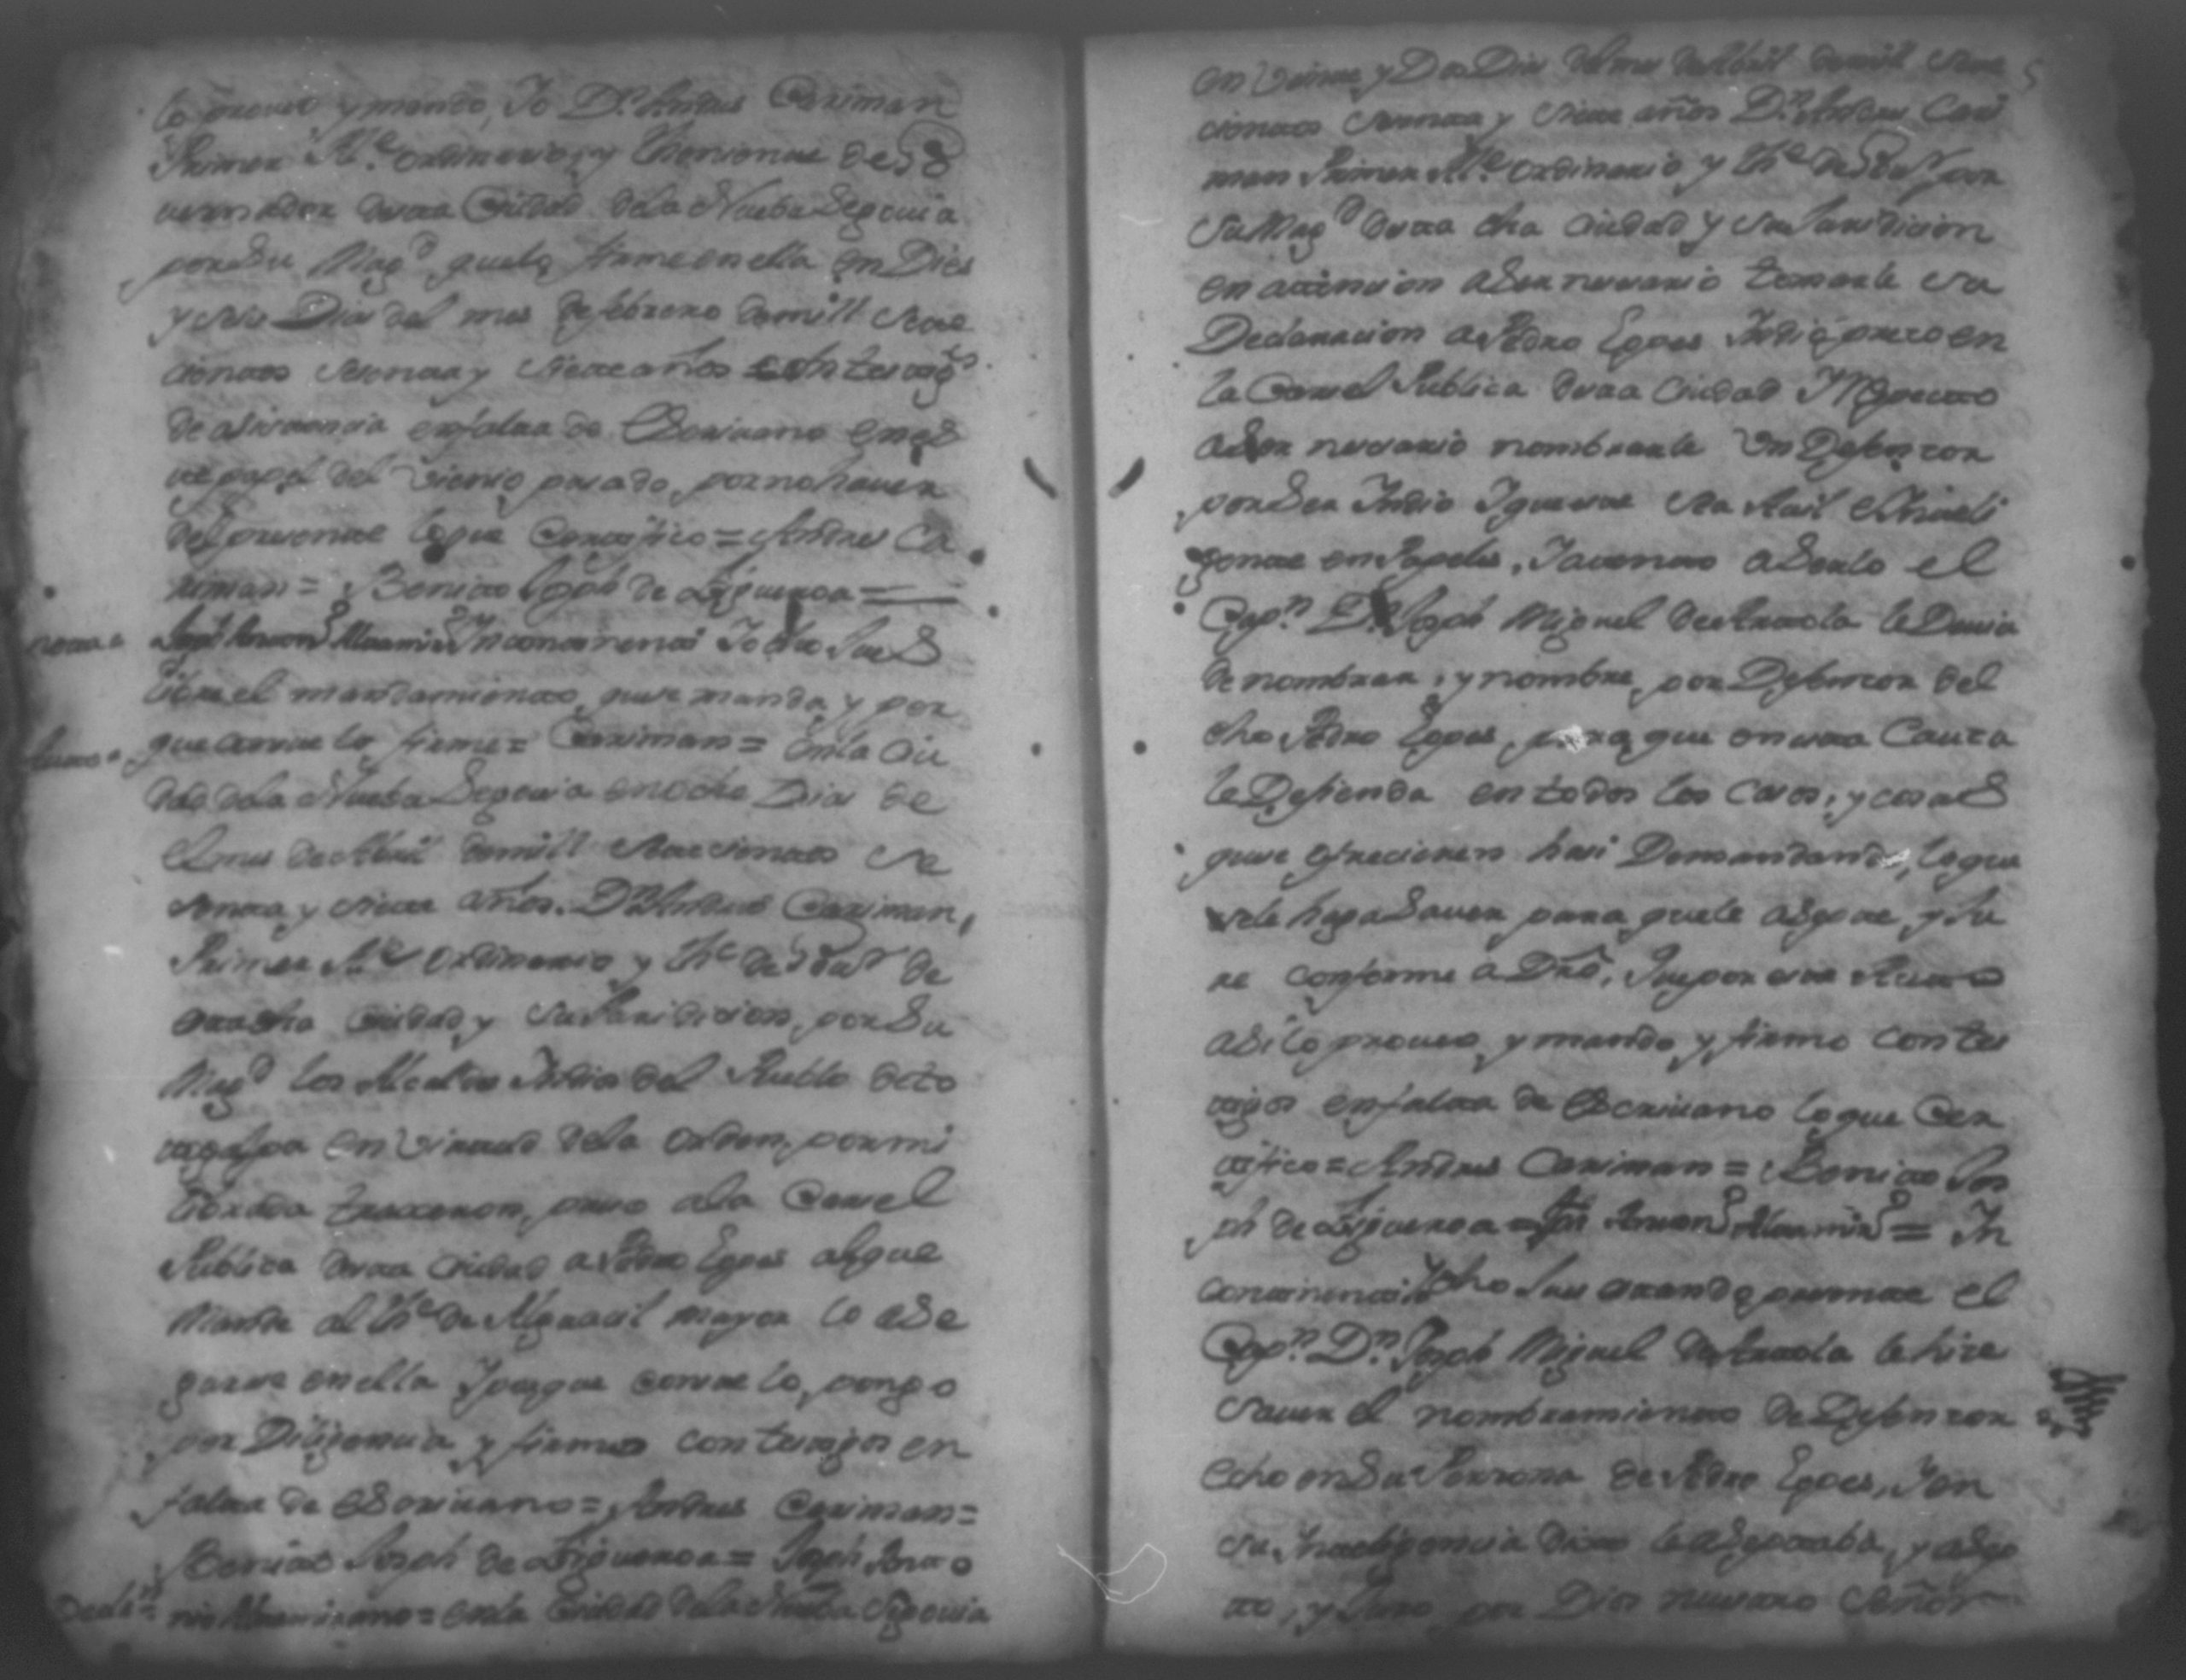 lo proveo y mando, Yo Dn. Andres Cariman
Primer Alce. ordinario, y Theniente de Go
vernador desta Ciudad dela Nueba Segovia
por Su Magd. quelo firme en ella en Dies
y seis Dias del mes de febrero demill sete
cientos sesenta y siete años con testigos
de asistencia enfalta de Escrivano en es
te papel del vienio pasado, por no haver
del presente lo que Certifico = Andres Ca
riman = Benito Joseph de Figueroa =
nota = Joseph Antono. Altamirano In continenti Yo dho Jues
libre el mandamiento, que se manda, y por
que conste lo firme = Cariman = En la Ciu
dad dela Nueba Segovia en ocho Dias de
el mes de Abril demill setecientos se
senta y siete años. Dn. Andres Cariman,
Primer Alce. ordinario y The. de Govr. de
esta dha Ciudad y su Jurisdicion, por Su
Magd. los Alcaldes Indios del Pueblo de to
togalpa en virtud dela orden, por mi
librada trajeron, preso ala Carsel
Publica desta Ciudad a Pedro Lopes al que
Mande al The. de Alguacil mayor lo ase
gurase en ella Y para que conste lo, pongo
por Diligencia y firmo con testigos en
falta de Escrivano = Andres Cariman =
Benito Joseph de Figueroa = Joseph Anto
nio Altamirano = En la Ciudad dela Nueba Segovia
en veinte y Dos Dias del mes de Abril demill sete
cientos sesenta y siete años Dn. Andres Cari
man Primer Alce. ordinario y The. de Govr. por
su Magd. desta dha Ciudad y su Jurisdicion
en attencion a Ser nesesario tomarle su
Declaracion a Pedro Lopes Indio preso en
la Carsel Publica desta Ciudad Y Respecto
a Ser nesesario nombrarle Un Defensor
por Ser Indio
en Papeles, Y atento a Serlo el
Capn. Dn. Joseph Miguel de Arrata le Devia
de nombrar, y nombre, por Defensor del
dho Pedro Lopes, para, que en esta Causa
le Defienda en todos los Casos, y cosas
que se ofrecieren hasi Demandando, lo que
se le haga Saver para, que le asepte, y Ju
re conforme a Dro. Que por este Auto
asi lo proveo, y mando y firmo con tes
tigos enfalta de Escrivano lo que Cer
tifico = Andres Cariman = Benito Jos
ph de Figueroa = Jph Antono. Altamirno. = In
continenti Yo dho Jues estando presente el
Capn. Dn. Joseph Miguel de Arrata le hise
saver el nombramiento de Defensor
echo en Su Persona de Pedro Lopes, Y en
su Inteligencia Dixo le aseptaba, y asep
to, y Juro por Dios nuestro Señor